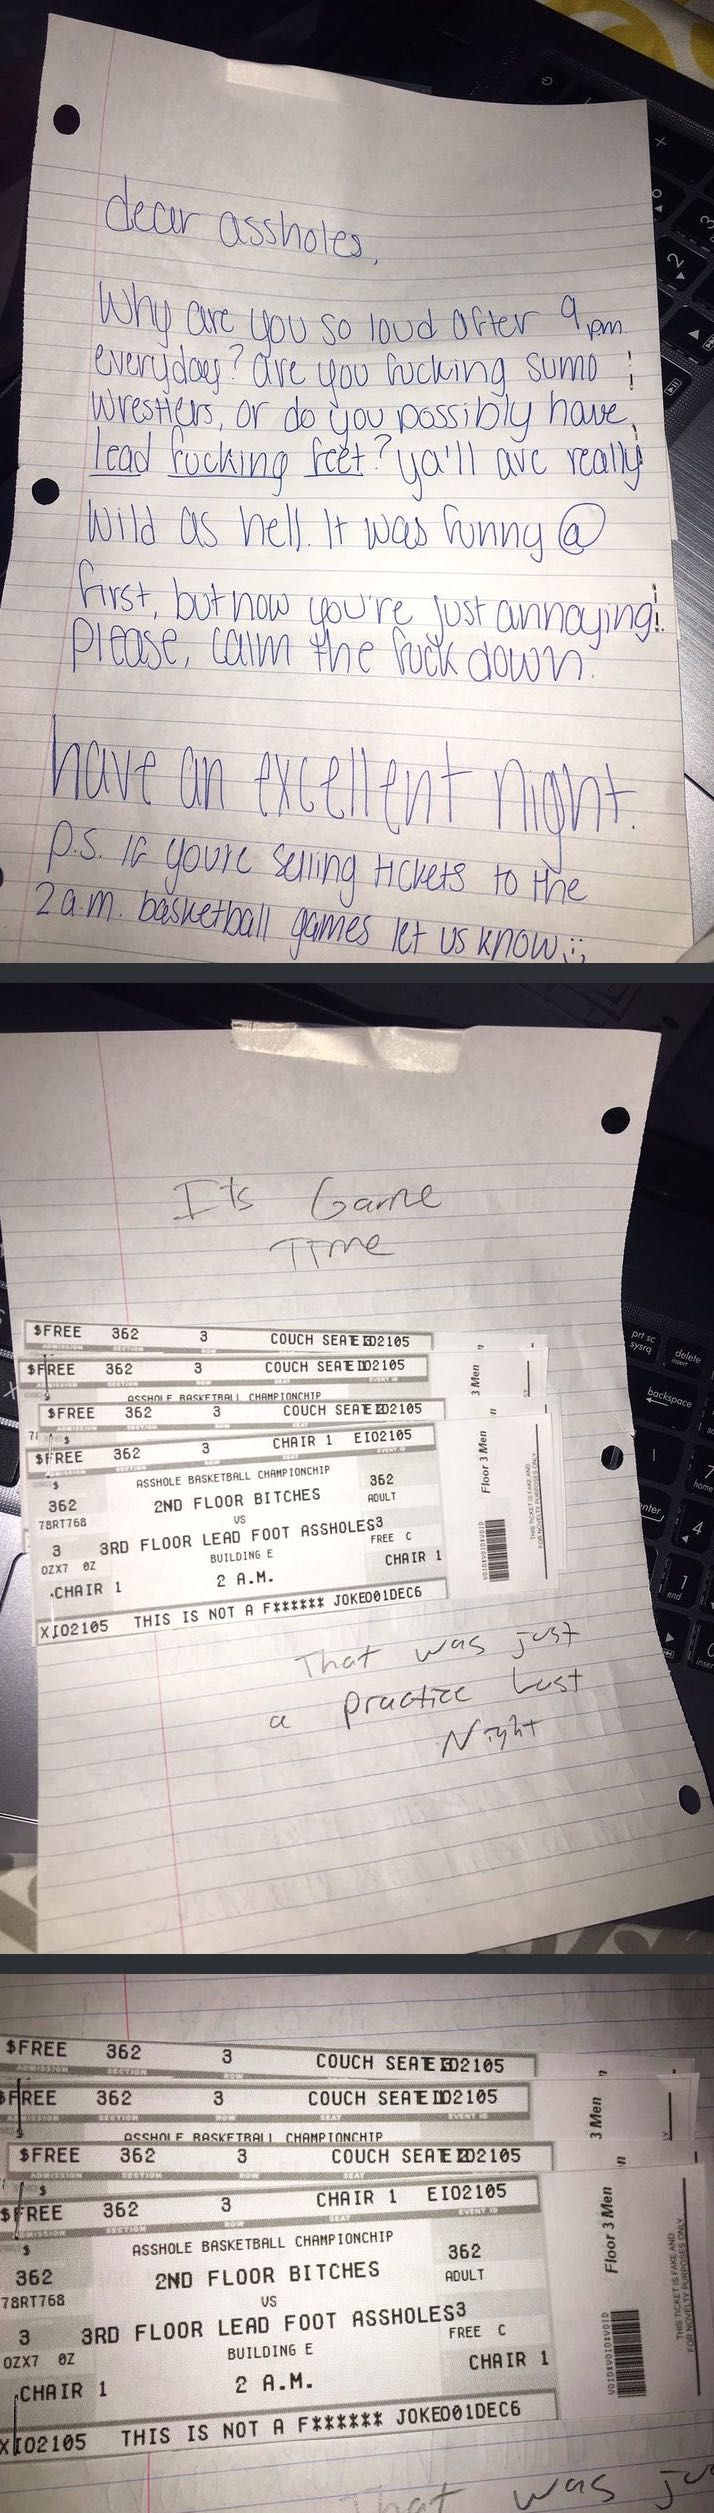 dear assholes,
Why are you so loud after 9pm
everyday? are you fucking sumo
wrestlers, or do you possibly have
lead fucking feet? ya'll are really
wild as hell. It was funny @
first, but now you're just annoying!
Please, calm the fuck down.
have an excellent night.
P.S. If you're selling tickets to the
2 a.m. basketball games let us know :;
Its Game
Time
$FREE 362 3 COUCH SEAT EIO2105
$FREE 362 3 COUCH SEAT EIO2105
ASSHOLE BASKETBALL CHAMPIONCHIP
$FREE 362 3 COUCH SEAT EIO2105
$FREE 362 3 CHAIR 1 EIO2105
ASSHOLE BASKETBALL CHAMPIONCHIP
362 2ND FLOOR BITCHES 362
78RT768 VS ADULT
3 3RD FLOOR LEAD FOOT ASSHOLES3
OZX7 0Z BUILDING E FREE C
CHAIR 1 2 A.M. CHAIR 1
XIO2105 THIS IS NOT A F****** JOKE001DEC6
3 Men
Floor 3 Men
VOID$VOID$VOID
THIS TICKET IS FAKE AND
FOR NOVELTY PURPOSES ONLY
That was just
a practice Last
Night
$FREE 362 3 COUCH SEAT EIO2105
ADMISSION SECTION ROW
$FREE 362 3 COUCH SEAT EIO2105
ADMISSION SECTION ROW SEAT EVENT ID
ASSHOLE BASKETBALL CHAMPIONCHIP
$FREE 362 3 COUCH SEAT EIO2105
ADMISSION SECTION ROW SEAT
$FREE 362 3 CHAIR 1 EIO2105
ADMISSION SECTION ROW SEAT EVENT ID
$ ASSHOLE BASKETBALL CHAMPIONCHIP
362 2ND FLOOR BITCHES 362
78RT768 VS ADULT
3 3RD FLOOR LEAD FOOT ASSHOLES3
OZX7 0Z BUILDING E FREE C
CHAIR 1 2 A.M. CHAIR 1
XIO2105 THIS IS NOT A F****** JOKE001DEC6
3 Men
Floor 3 Men
VOID$VOID$VOID
THIS TICKET IS FAKE AND
FOR NOVELTY PURPOSES ONLY
That was ju